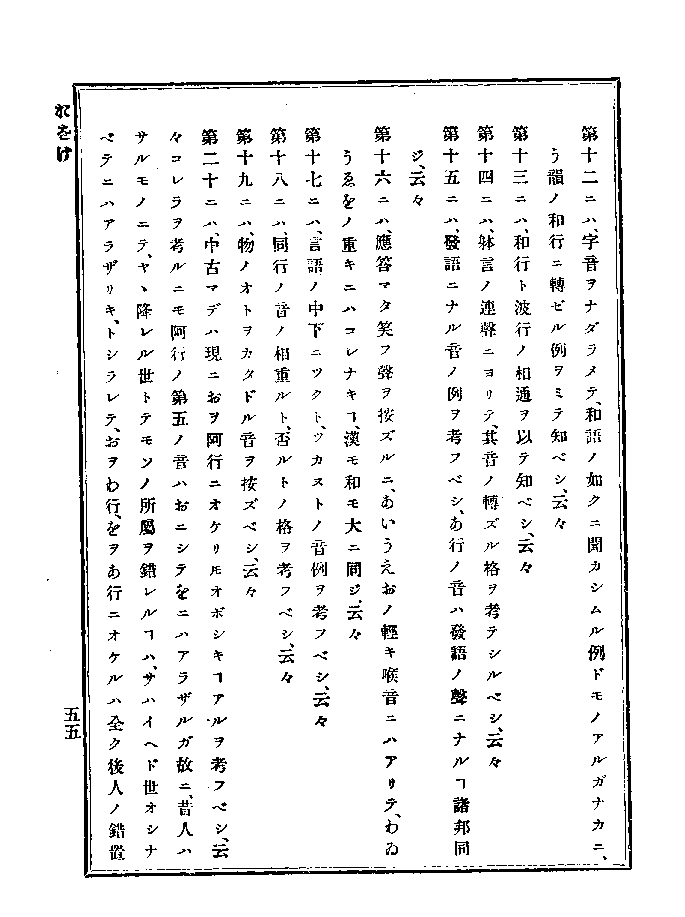 第十二ニハ、字音ヲナダラメテ、和語ノ如クニ聞カシムル例ドモノアルガナカニ、
う韻ノ和行ニ轉ゼル例ヲミテ知ベシ、云々
第十三ニハ、和行ト波行ノ相通ヲ以テ知ベシ、云々
第十四ニハ、躰言ノ連聲ニヨリテ、其音ノ轉ズル格ヲ考テシルベシ、云々
第十五ニハ、發語ニナル音ノ例ヲ考フベシ、あ行ノ音ハ發語ノ聲ニナルヿ諸邦同
ジ、云々
第十六ニハ、應答マタ笑フ聲ヲ按ズルニ、あいうえおノ輕キ喉音ニハアリテ、わゐ
うゑをノ重キニハコレナキヿ、漢モ和モ大ニ同ジ、云々
第十七ニハ、言語ノ中下ニツクト、ツカヌトノ音例ヲ考フベシ、云々
第十八ニハ、同行ノ音ノ相重ルト、否ルトノ格ヲ考フベシ、云々
第十九ニハ、物ノオトヲカタドル音ヲ按ズベシ、云々
第二十ニハ、中古マデハ現ニおヲ阿行ニオケリ𪜈オボシキヿアルヲ考フベシ、云
々コレラヲ考ルニモ阿行ノ第五ノ音ハおニシテをニハアラザルガ故ニ、昔人ハ
サルモノニテ、ヤヽ降レル世トテモソノ所屬ヲ錯レルヿハ、サハイヘド世オシナ
ベテニハアラザリキ、トシラレテ、おヲわ行、をヲあ行ニオケルハ全ク後人ノ錯置
おをけ
五五